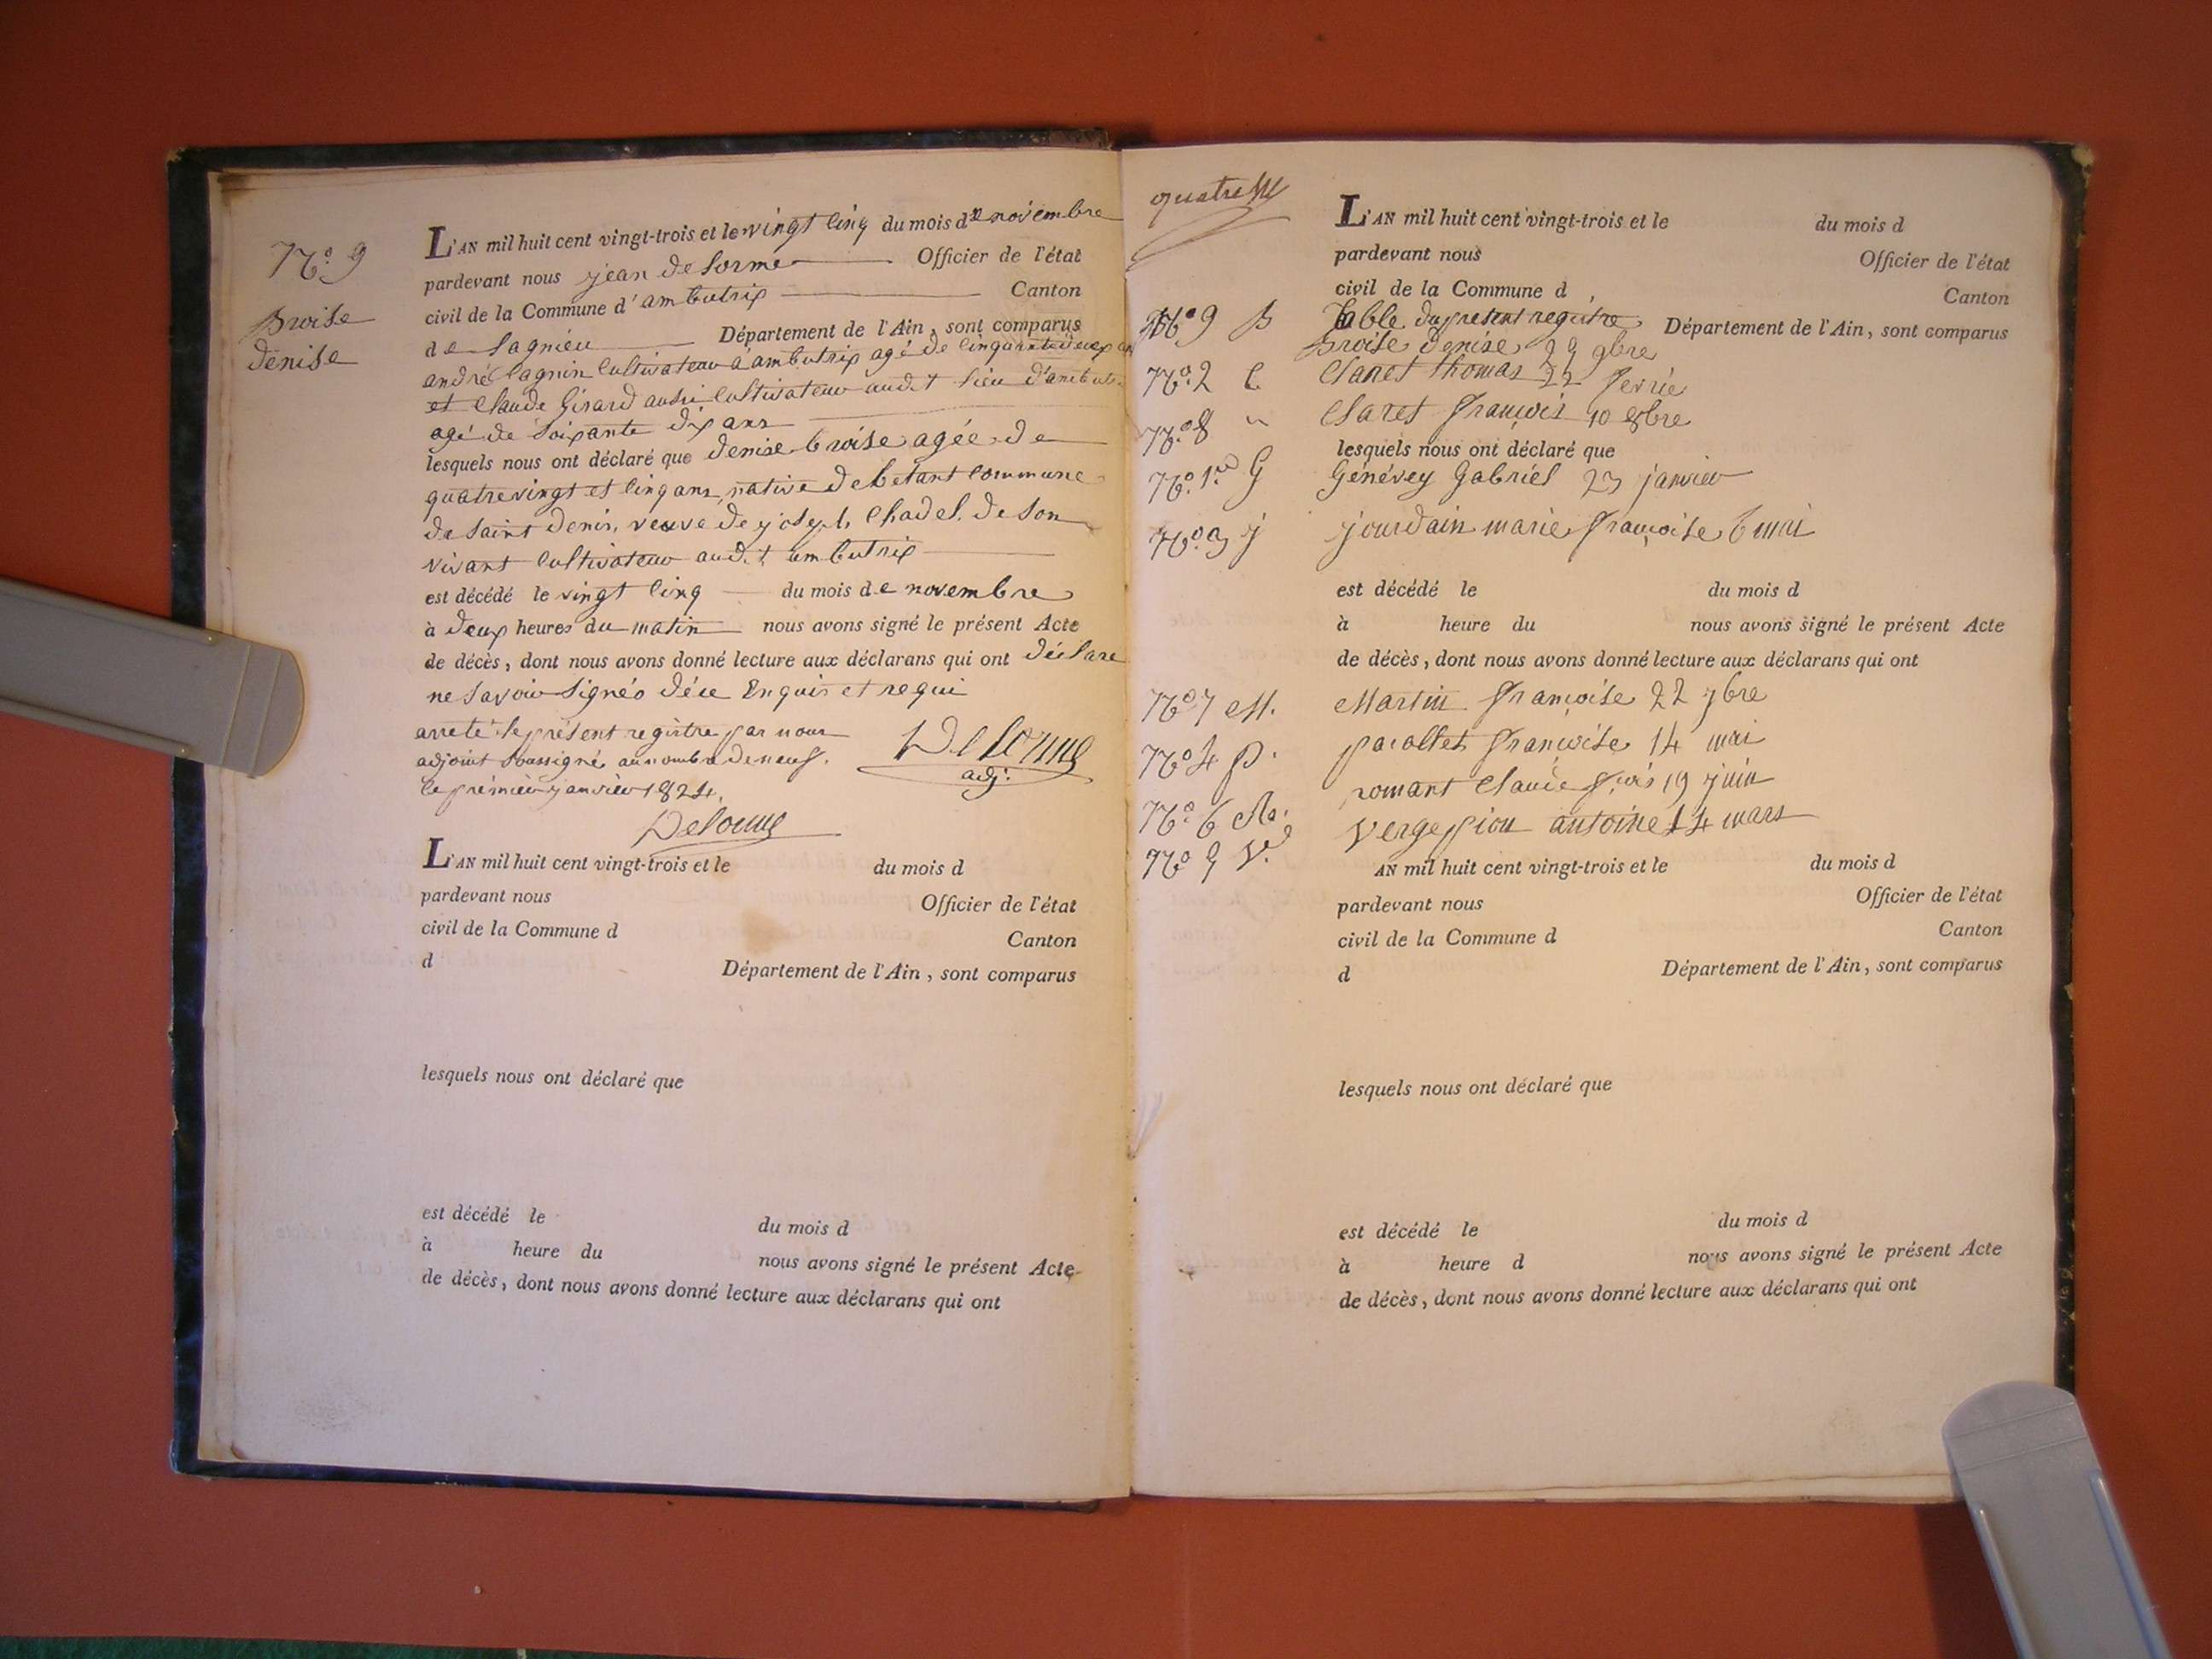 N.° 9
Broise
denise
L'AN mil huit cent vingt-trois et le vingt cinq du mois de novembre
pardevant nous jean delorme Officier de l'état
civil de la Commune d'ambutrix Canton
de Lagnieu Département de l'Ain, sont comparus
andré Cagnin Cultivateur a ambutrix agé de Cinquante deux an
et Claude Girard aussi Cultivateur audit lieu d'ambutrix
agé de Soixante dix ans
lesquels nous ont déclaré que denise broise agée de
quatrevingt et cinq ans, native de betant Commune
de Saint denis, veuve de joseph Chadel, de Son
vivant Cultivateur audit ambutrix
est décédé le vingt cinq du mois de novembre
à deux heures du matin nous avons signé le présent Acte
de décès, dont nous avons donné lecture aux déclarans qui ont déclaré
ne Savoir Signés dece Enquis et requi
arreté le présent registre par nous
adjoint Soussigné au nombre de neuf.
le prémier janvier 1824.
Delorme
adj.
Delorme
L'AN mil huit cent vingt-trois et le du mois d
pardevant nous Officier de l'état
civil de la Commune d Canton
d Département de l'Ain, sont comparus
lesquels nous ont déclaré que
est décédé le du mois d
à heure du nous avons signé le présent Acte
de décès, dont nous avons donné lecture aux déclarans qui ont
quatre
L'AN mil huit cent vingt-trois et le du mois d
pardevant nous Officier de l'état
civil de la Commune d Canton
Table du présent registre Département de l'Ain, sont comparus
N.° 9 B Broise denise 25 9bre
N.° 2 C Claret thomas 22 fevrié
N.° 8 " Claret françois 10 8bre
lesquels nous ont déclaré que
N.° 1.er G Génévey Gabriél 23 janvier
N.° j jourdain marie françoise 6 mai
est décédé le du mois d
à heure du nous avons signé le présent Acte
de décès, dont nous avons donné lecture aux déclarans qui ont
N.° 7 M. Martin françoise 22 7bre
N.° 4 p. françoise 14 mai
N.° 6 R. romant Claude 19 juin
N.° V. antoine 14 mars
AN mil huit cent vingt-trois et le du mois d
pardevant nous Officier de l'état
civil de la Commune d Canton
d Département de l'Ain, sont comparus
lesquels nous ont déclaré que
est décédé le du mois d
à heure d nous avons signé le présent Acte
de décès, dont nous avons donné lecture aux déclarans qui ont